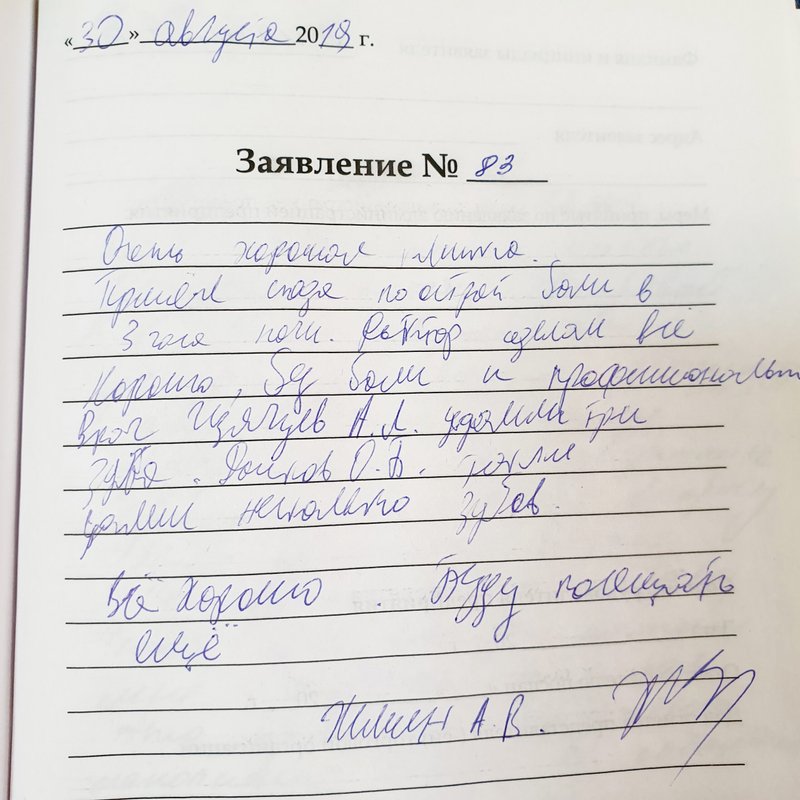 «30» августа 2019 г.
Заявление № 83
Очень хорошая клиника.
Пришёл сюда по острой боли в
3 часа ночи. Доктор сделал всё
хорошо, без боли и профессионально
Врач А.Л. удалили три
зуба. О.В. также
удалили несколько зубов.
Всё хорошо. Буду посещать
ещё
А.В.